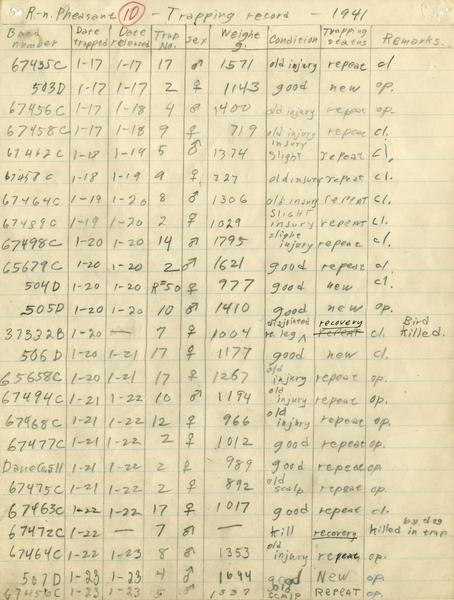 R-n. Pheasant 10 - Trapping record - 1941
Band number Date trapped Date released Trap No. Sex Weight g. Condition Trapping status Remarks.
67435C 1-17 1-17 17 ♂ 1571 old injury repeat cl
503D 1-17 1-17 2 ♀ 1143 good new op.
67456C 1-17 1-18 4 ♂ 1400 old injury repeat op.
67458C 1-17 1-18 9 ♀ 719 old injury repeat cl.
67462C 1-18 1-19 5 ♂ 1374 injury slight repeat cl.
67458C 1-18 1-19 9 ♀ 727 old injury repeat cl.
67464C 1-19 1-20 8 ♂ 1306 old injury repeat cl.
67489C 1-19 1-20 2 ♀ 1029 slight injury repeat cl.
67498C 1-20 1-20 14 ♂ 1795 slight injury repeat cl.
65679C 1-20 1-20 2 ♂ 1621 good repeat cl
504D 1-20 1-20 R#50 ♀ 977 good new cl.
505D 1-20 1-20 10 ♂ 1410 good new op.
37332B 1-20 — 7 ♀ 1004 disjointed r. leg recovery repeat cl. Bird killed.
506D 1-20 1-21 17 ♀ 1177 good new cl.
65658C 1-20 1-21 17 ♀ 1267 old injury repeat op.
67494C 1-21 1-22 10 ♂ 1194 old injury repeat op.
67468C 1-21 1-22 12 ♀ 966 old injury repeat op.
67477C 1-21 1-22 2 ♀ 1012 good repeat op.
1-21 1-22 2 ♀ 989 good repeat op
67475C 1-21 1-22 2 ♀ 892 old scalp repeat op.
67463C 1-22 1-22 17 ♀ 1017 good repeat cl
67472C 1-22 — 7 ♂ — kill recovery killed by dog in trap
67464C 1-22 1-23 8 ♂ 1353 old injury repeat op.
507D 1-23 1-23 4 ♂ 1644 good New op.
67456C 1-23 1-23 5 ♂ 1337 old scalp REPEAT OP.